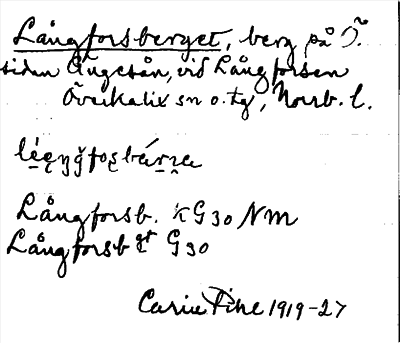 Långforsberget, berg på Ö.
sidan Ängesån, vid Långforsen
Överkalix sn o. tg, Norrb. l.
Långforsb. KG30 NM
Långforsb gt G30
Carin Pihl 1919-27